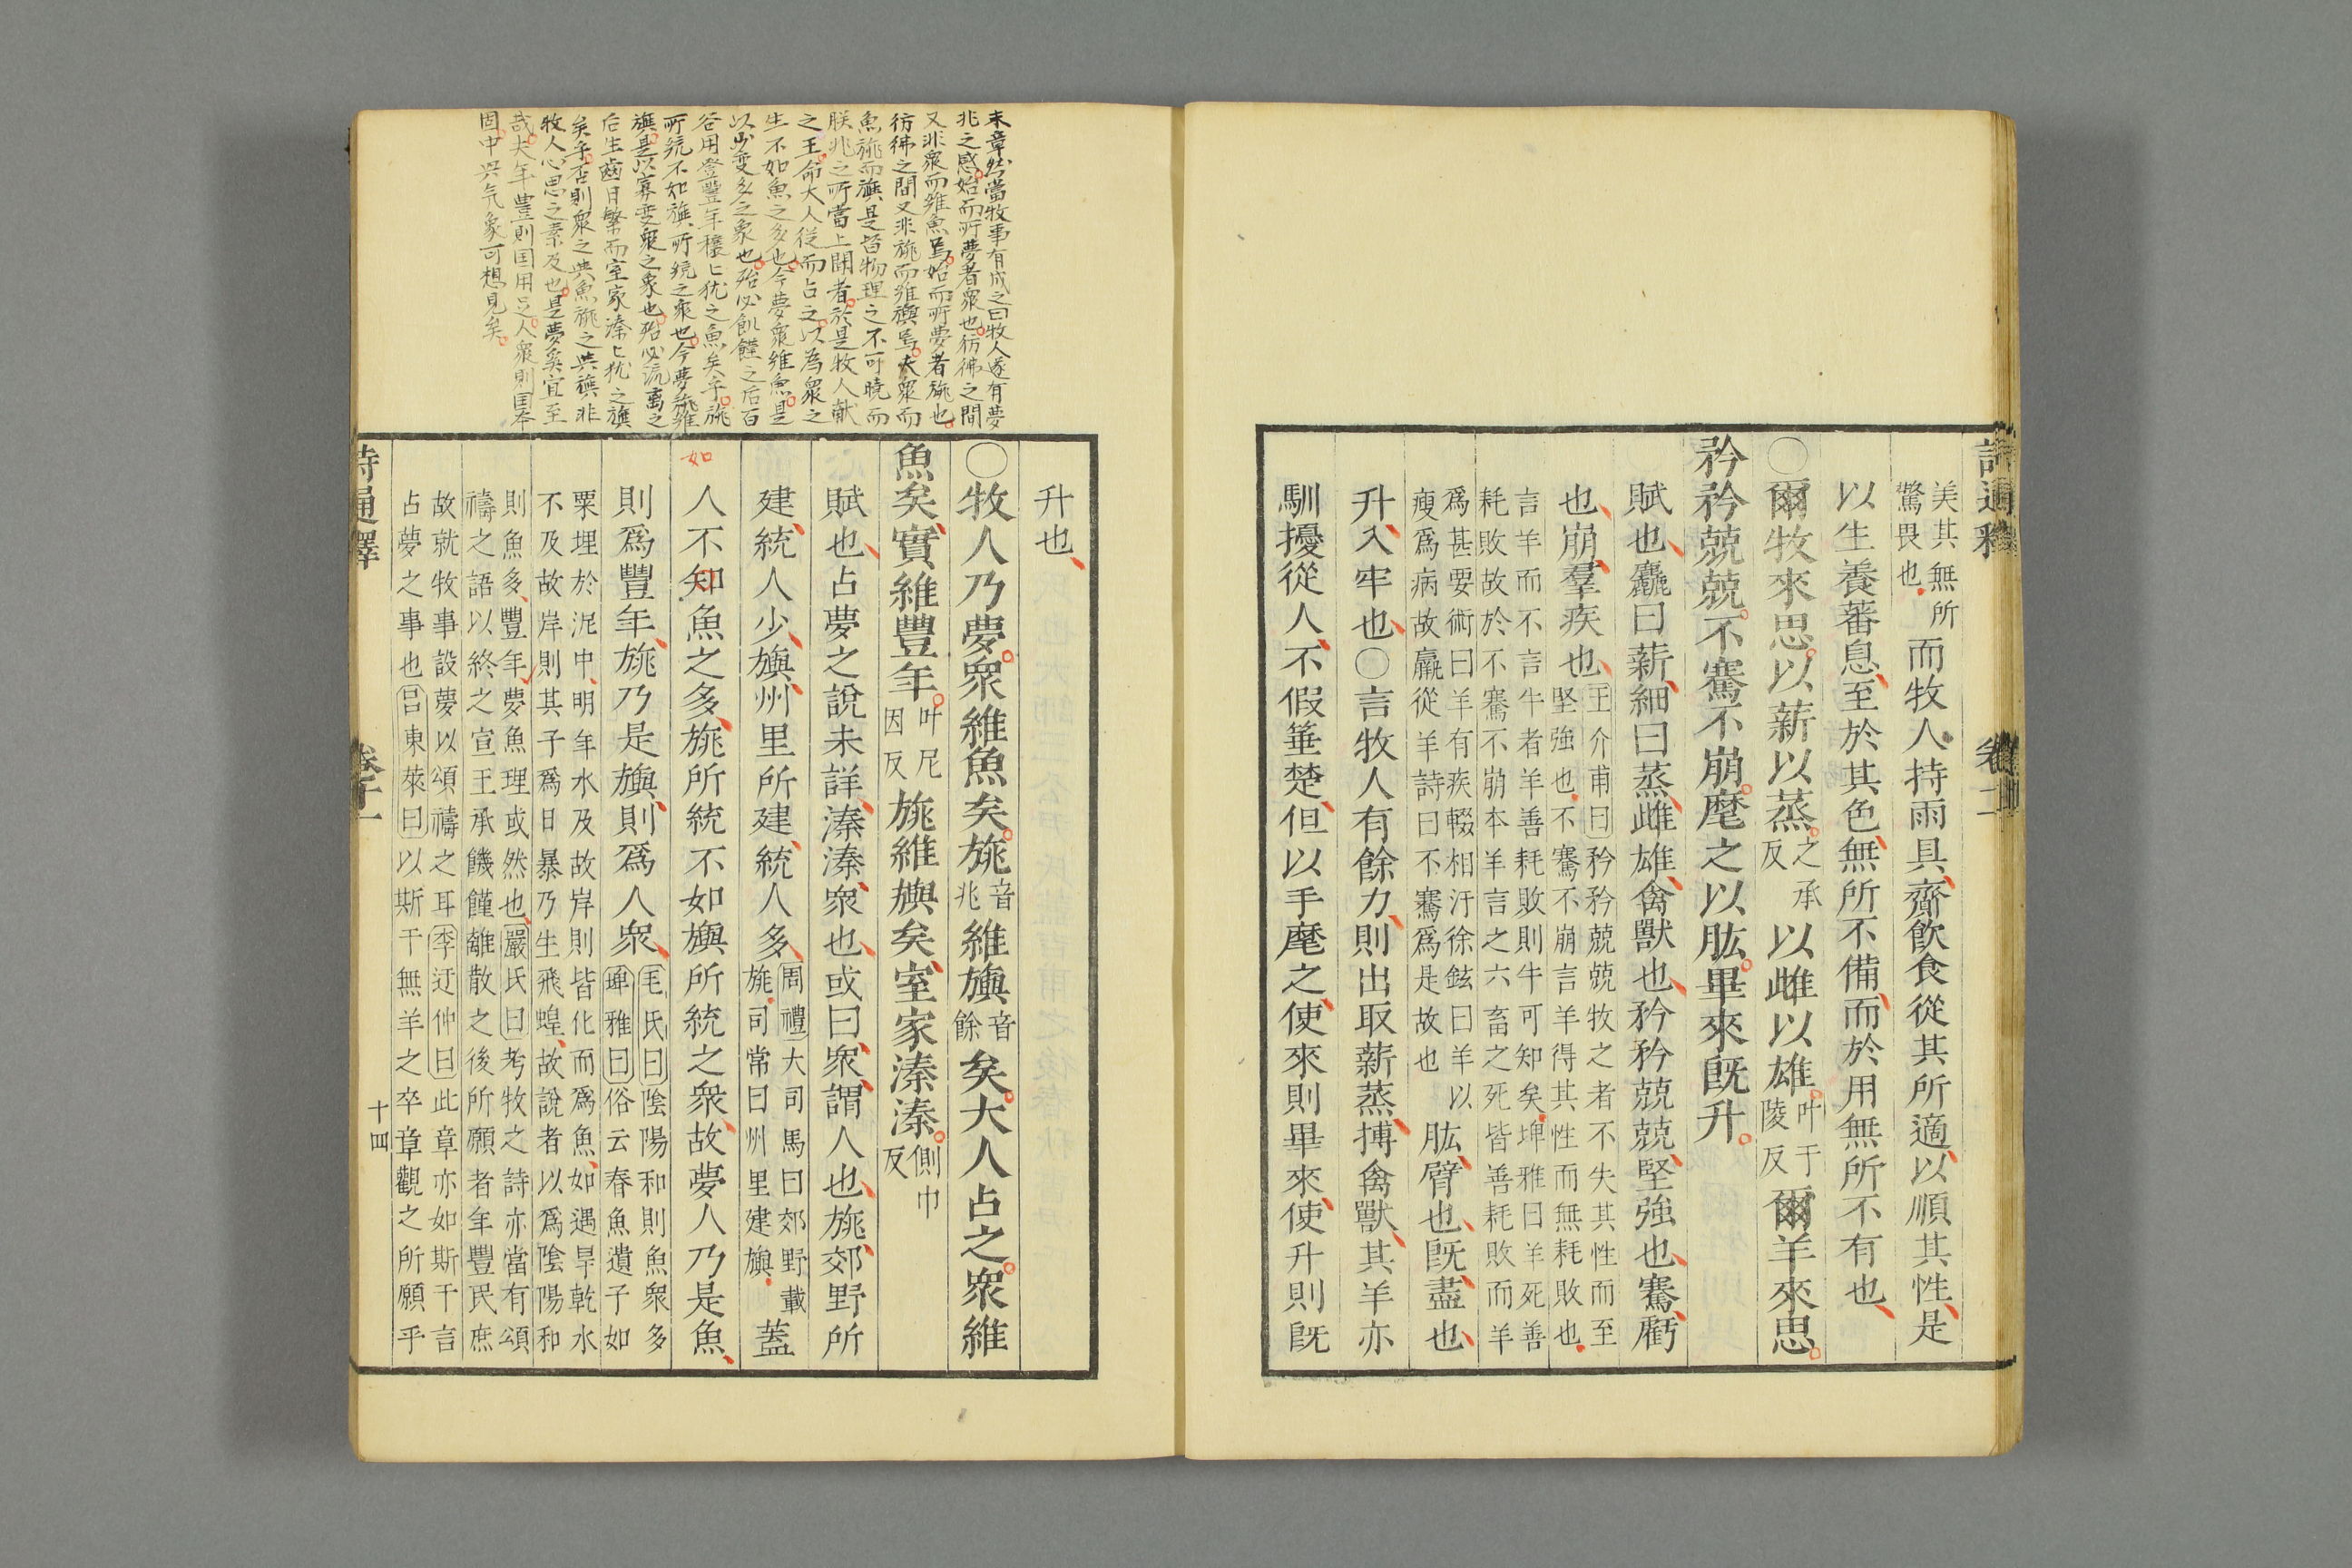 詩通釋 卷十一
美其無所
驚畏也 而牧人持雨具齎飲食從其所適以順其性是
以生養蕃息至於其色無所不備而於用無所不有也
〇爾牧來思以薪以蒸之承反以雌以雄叶于陵反爾羊來思
矜矜兢兢不騫不崩麾之以肱畢來旣升
賦也麤曰薪細曰蒸雌雄禽獸也矜矜兢兢堅強也騫虧
也崩羣疾也王介甫曰矜矜兢兢牧之者不失其性而至
堅強也不騫不崩言羊得其性而無耗敗也
言羊而不言牛者羊善耗敗則牛可知矣埤雅曰羊死善
耗敗故於不騫不崩本羊言之六畜之死皆善耗敗而羊
爲甚要術曰羊有疾輟相汙徐鉉曰羊以
瘦爲病故羸從羊詩曰不騫爲是故也 肱臂也旣盡也
升入牢也〇言牧人有餘力則出取薪蒸搏禽獸其羊亦
馴擾從人不假箠楚但以手麾之使來則畢來使升則旣
升也
〇牧人乃夢衆維魚矣旐音兆維旟音餘矣大人占之衆維
魚矣實維豐年叶尼因反旐維旟矣室家溱溱側巾反
賦也占夢之說未詳溱溱衆也或曰衆謂人也旐郊野所
建統人少旟州里所建統人多周禮大司馬曰郊野載
旐司常曰州里建旟 蓋
人不知魚之多旐所統不如旟所統之衆故夢人乃是魚
如
則爲豐年旐乃是旟則爲人衆毛氏曰陰陽和則魚衆多
埤雅曰俗云春魚遺子如
粟埋於泥中明年水及故岸則皆化而爲魚如遇旱乾水
不及故岸則其子爲日暴乃生飛蝗故說者以爲陰陽和
則魚多豐年夢魚理或然也嚴氏曰考牧之詩亦當有頌
禱之語以終之宣王承饑饉離散之後所願者年豐民庶
故就牧事設夢以頌禱之耳李迂仲曰此章亦如斯干言
占夢之事也呂東萊曰以斯干無羊之卒章觀之所願乎
詩通釋 卷十一 十四
末章然當牧事有成之曰牧人遂有夢
兆之感始而所夢者衆也彷彿之間
又非衆而維魚焉始而所夢者旐也
彷彿之間又非旐而維旟焉夫衆而
魚旐而旟是皆物理之不可曉而
朕兆之所當上聞者於是牧人獻
之王命大人從而占之以為衆之
生不如魚之多也今夢衆維魚是
以少变多之象也殆必飢饉之后百
谷用登豐年穰匕犹之魚矣乎旐
所統不如旟所統之衆也今夢旐維
旟是以寡变衆之象也殆必流离之
后生齒日繁而室家溱匕犹之旟
矣乎否則衆之與魚旐之與旟非
牧人心思之素及也是夢奚宜至
哉夫年豊則国用足人衆則国本
固中兴气象可想見矣